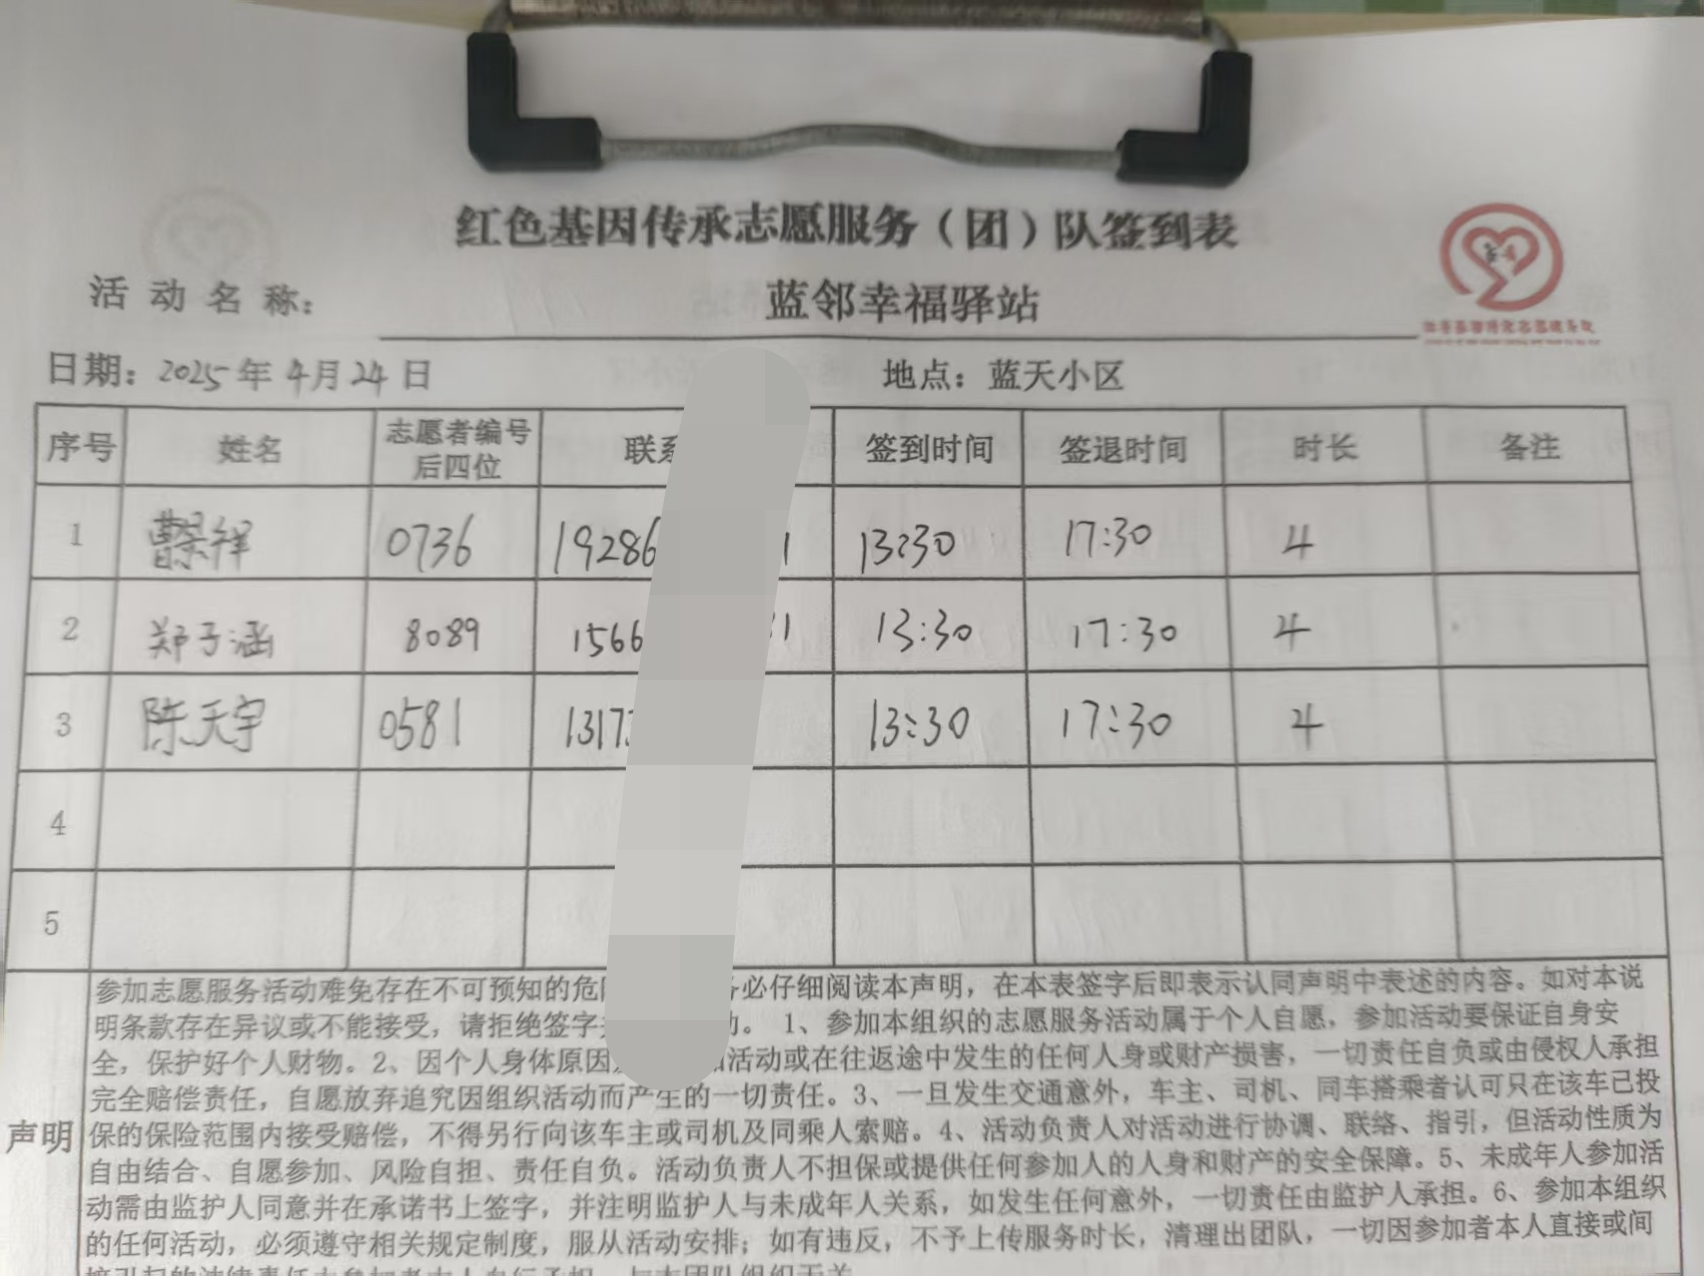 红色基因传承志愿服务（团）队签到表
活动名称： 蓝邻幸福驿站
日期：2025年4月24日 地点：蓝天小区
序号 姓名 志愿者编号后四位 联系 签到时间 签退时间 时长 备注
1 曹景祥 0736 19286 1 13:30 17:30 4
2 郑子涵 8089 1566 31 13:30 17:30 4
3 陈天宇 0581 1317 13:30 17:30 4
4
5
声明
参加志愿服务活动难免存在不可预知的危 必仔细阅读本声明，在本表签字后即表示认同声明中表述的内容。如对本说
明条款存在异议或不能接受，请拒绝签字 。 1、参加本组织的志愿服务活动属于个人自愿，参加活动要保证自身安
全，保护好个人财物。2、因个人身体原因 活动或在往返途中发生的任何人身或财产损害，一切责任自负或由侵权人承担
完全赔偿责任，自愿放弃追究因组织活动而产生的一切责任。3、一旦发生交通意外，车主、司机、同车搭乘者认可只在该车已投
保的保险范围内接受赔偿，不得另行向该车主或司机及同乘人索赔。4、活动负责人对活动进行协调、联络、指引，但活动性质为
自由结合、自愿参加、风险自担、责任自负。活动负责人不担保或提供任何参加人的人身和财产的安全保障。5、未成年人参加活
动需由监护人同意并在承诺书上签字，并注明监护人与未成年人关系，如发生任何意外，一切责任由监护人承担。6、参加本组织
的任何活动，必须遵守相关规定制度，服从活动安排；如有违反，不予上传服务时长，清理出团队，一切因参加者本人直接或间